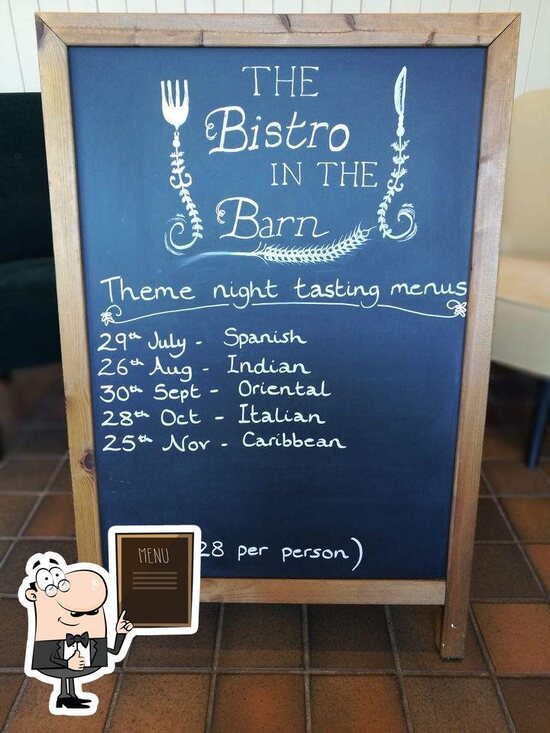 THE
Bistro
IN THE
Barn
Theme night tasting menus
29th July - Spanish
26th Aug - Indian
30th Sept - Oriental
28th Oct - Italian
25th Nov - Caribbean
28 per person)
MENU